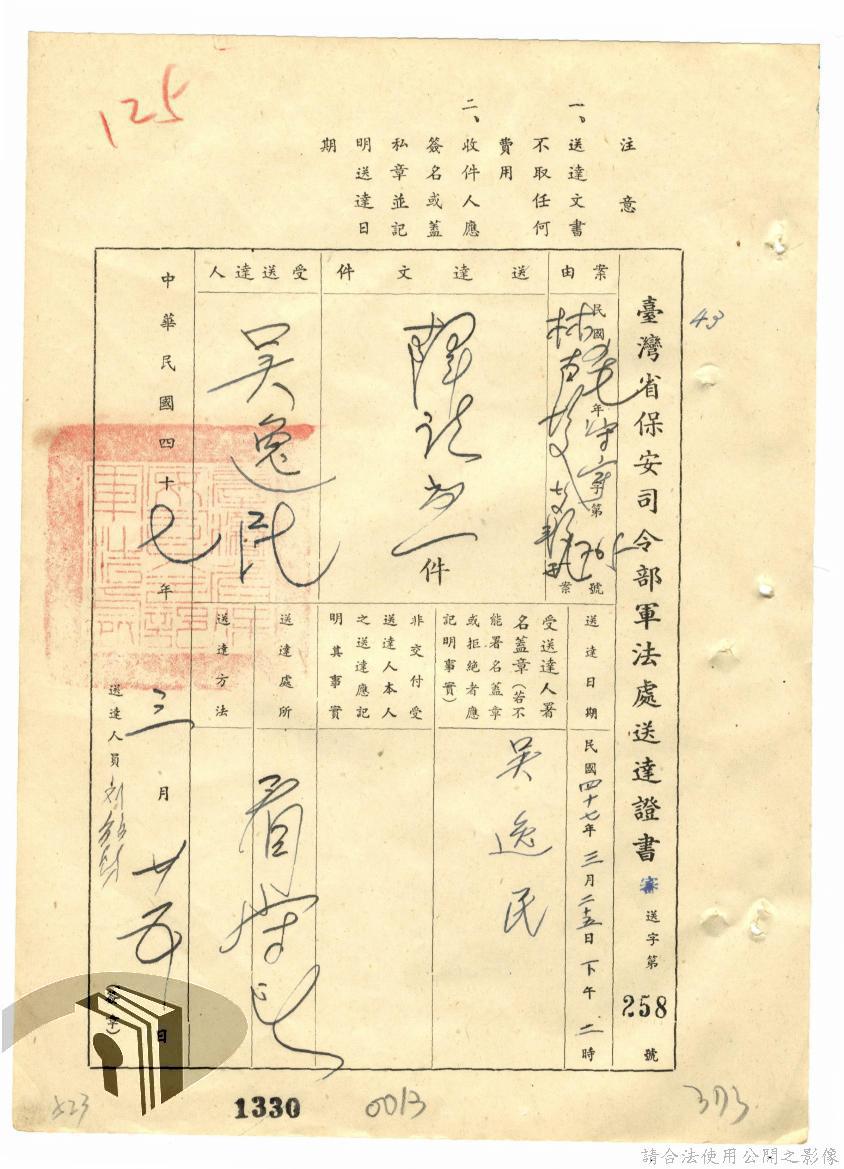 125
注意
一、送達文書
不取任何
費用
二、收件人應
簽名或蓋
私章並記
明送達日
期
43
臺灣省保安司令部軍法處送達證書
審送字第258號
案由
民國年字第號
案
送達文件
件
受送達人
吳逸民
送達日期
民國四十七年三月二十五日下午二時
受送達人署
名蓋章(若不
能署名蓋章
或拒絕者應
記明事實)
吳逸民
非交付受
送達人本人
之送達應記
明其事實
送達處所
看守所
送達方法
中華民國四十七年三月廿五日
送達人員
(簽章)
1330
0013
373
請合法使用公開之影像